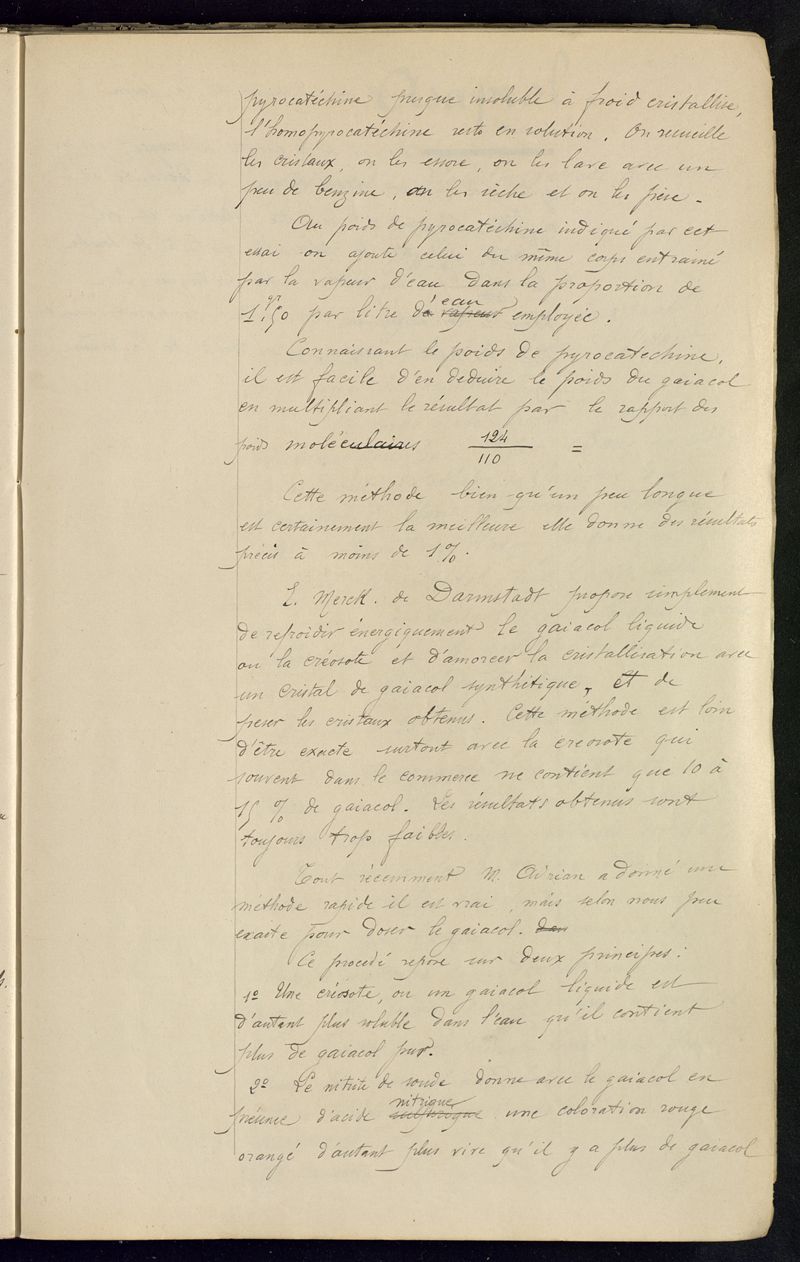 pyrocatéchine presque insoluble à froid cristallise,
l'homopyrocatéchine reste en solution. On recueille
les cristaux, on les essore, on les lave avec un
peu de benzine, on les sèche et on les pèse.
Au poids de pyrocatéchine indiqué par cet
essai on ajoute celui du même corps entrainé
par la vapeur d'eau dans la proportion de
1gr,50 par litre d'eau vapeur employée.
Connaissant le poids de pyrocatechine,
il est facile d'en deduire le poids du gaiacol
en multipliant le résultat par le rapport des
poids moléculaires 124/110 =
Cette méthode bien qu'un peu longue
est certainement la meilleure elle donne des résultats
précis à moins de 1%.
E. Merck. de Darmstadt propose simplement
de refroidir énergiquement le gaiacol liquide
ou la créosote et d'amorcer la cristallisation avec
un cristal de gaiacol synthétique, et de
peser les cristaux obtenus. Cette méthode est loin
d'être exacte surtout avec la creosote qui
souvent dans le commerce ne contient que 10 à
15 % de gaiacol. Les résultats obtenus sont
toujours trop faibles.
Tout récemment M. Adrian a donné une
méthode rapide il est vrai, mais selon nous peu
exacte pour doser le gaiacol. dans
Ce procedé repose sur deux principes:
1º Une créosote, ou un gaiacol liquide est
d'autant plus soluble dans l'eau qu'il contient
plus de gaiacol pur.
2º Le nitrite de soude donne avec le gaiacol en
présence d'acide nitrique une coloration rouge
orangé d'autant plus vive qu'il y a plus de gaiacol